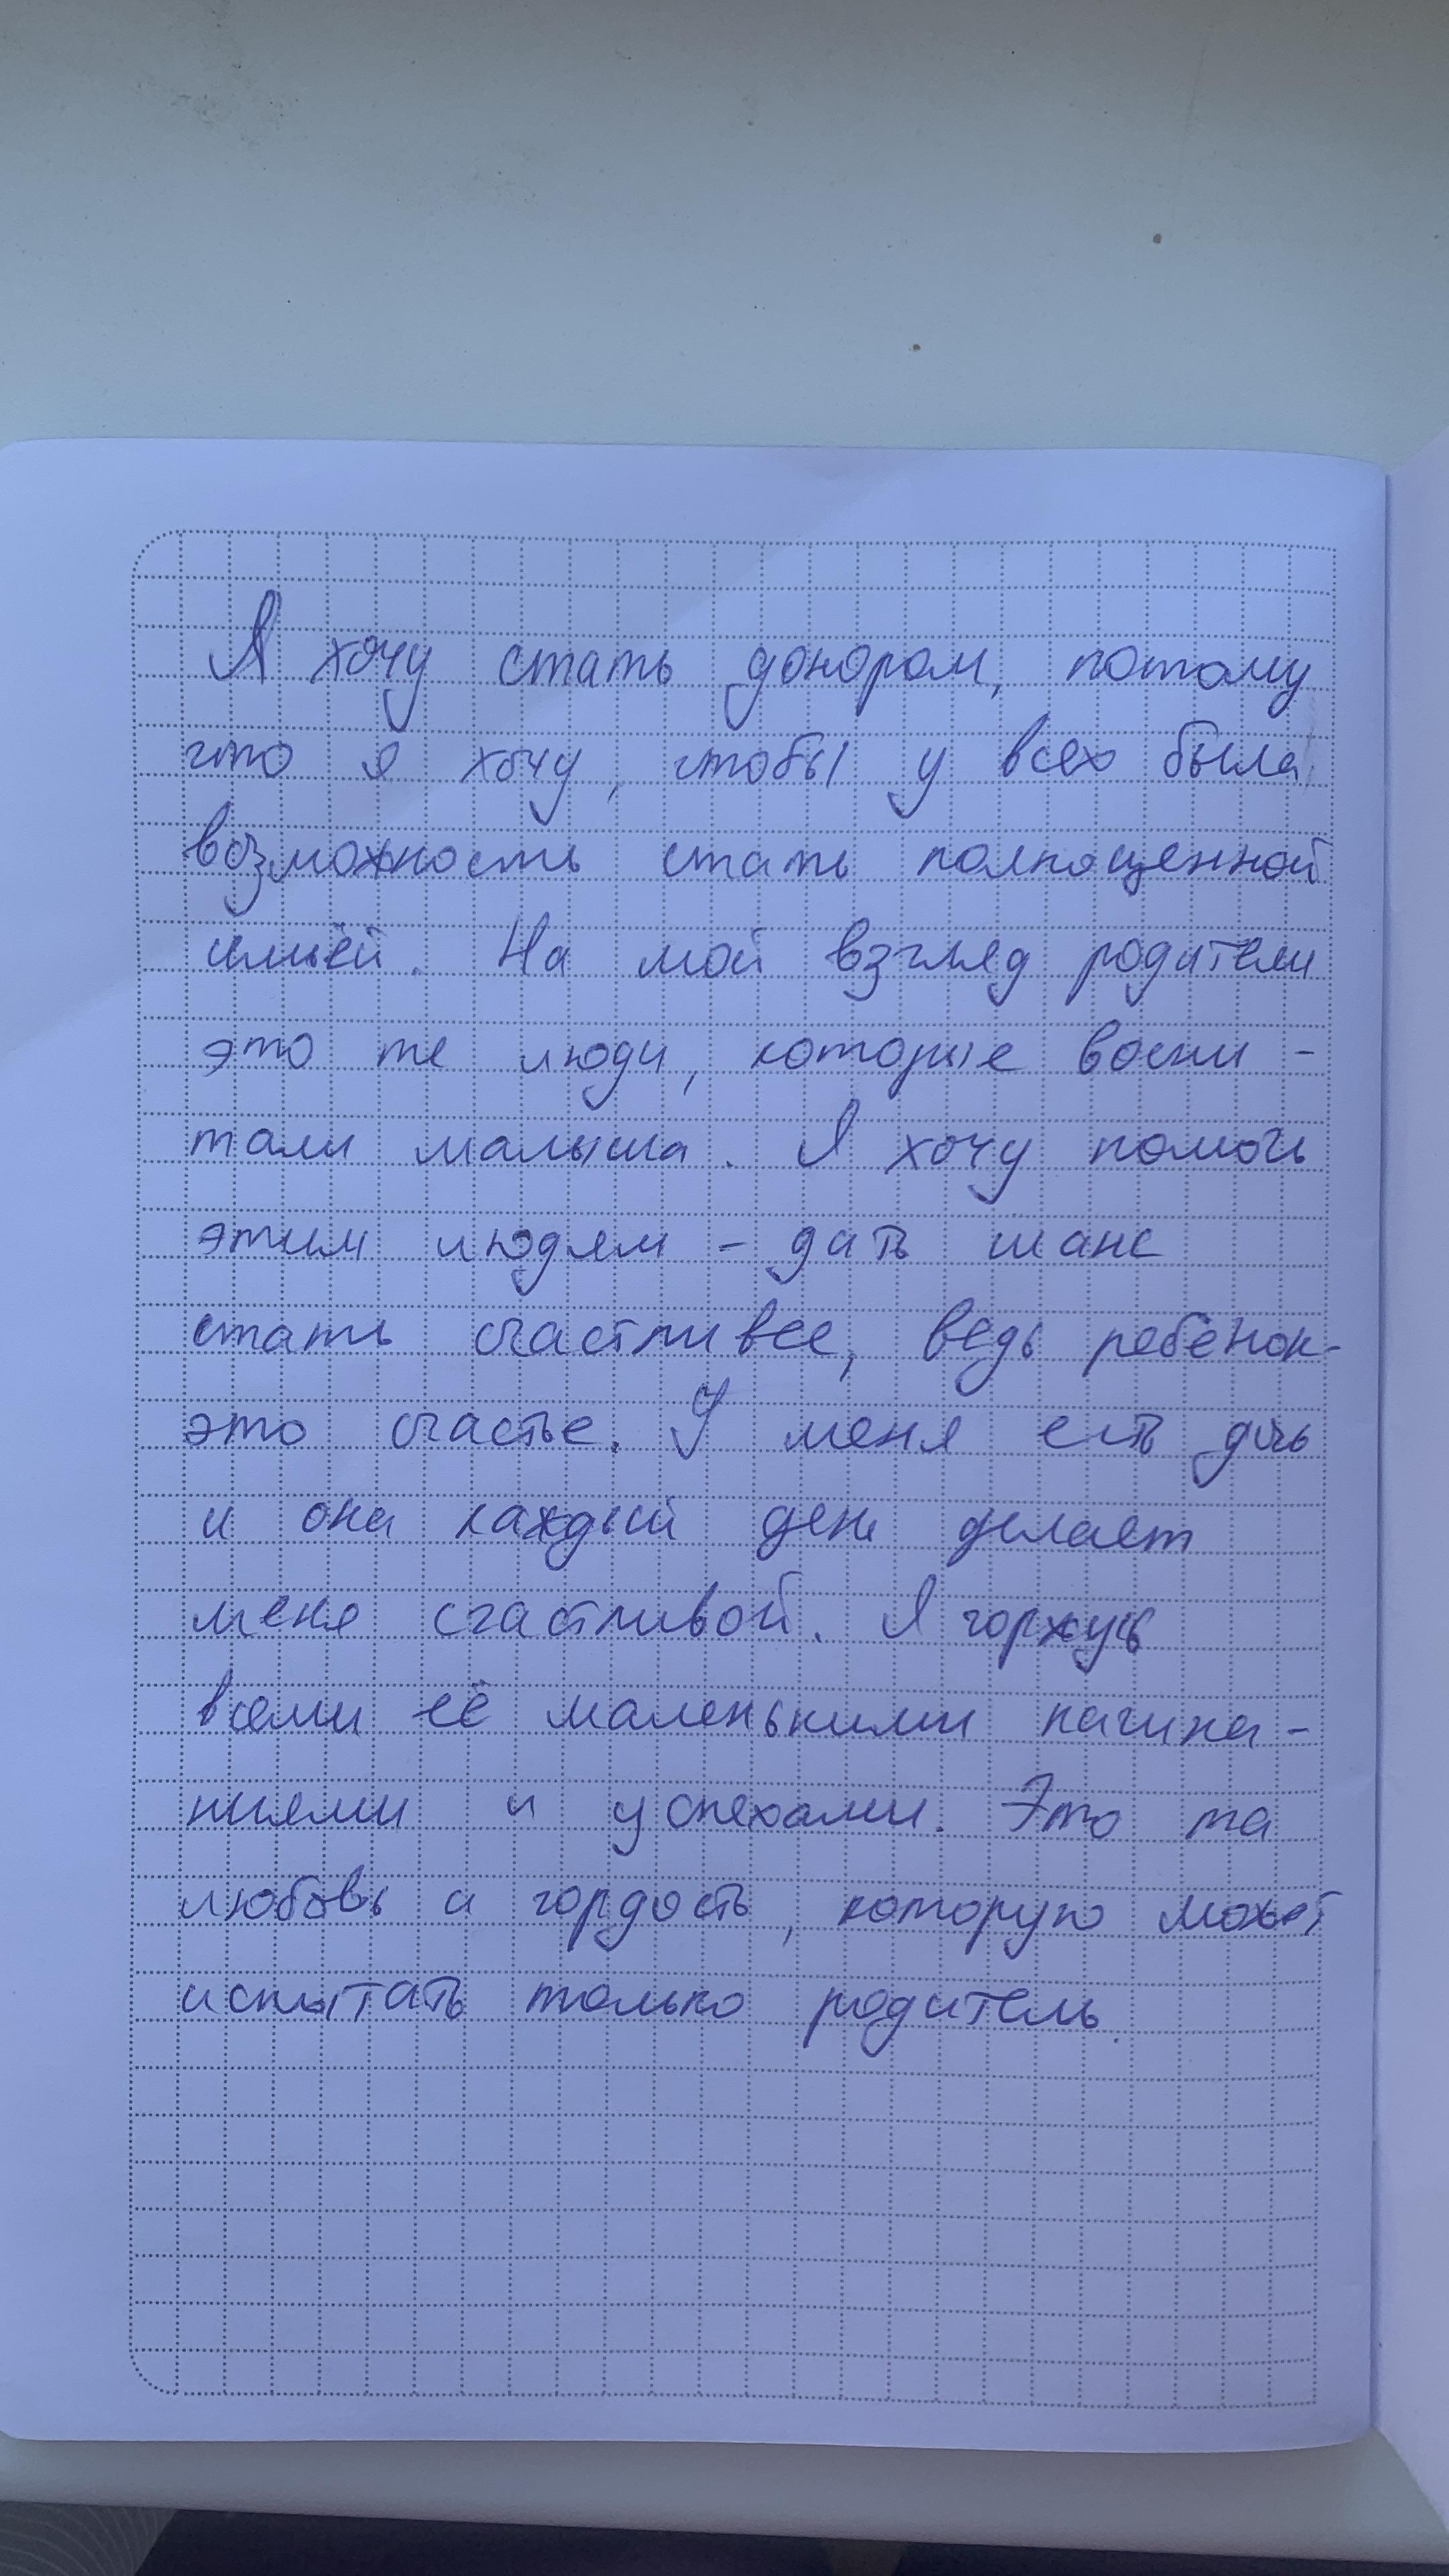 Я хочу стать донором, потому
что я хочу, чтобы у всех была
возможность стать полноценной
семьёй. На мой взгляд родители
это те люди, которые воспи-
тали малыша. Я хочу помочь
этим людям - дать шанс
стать счастливее, ведь ребенок-
это счастье. У меня есть дочь
и она каждый день делает
меня счастливой. Я горжусь
всеми её маленькими начина-
ниями и успехами. Это та
любовь и гордость, которую может
испытать только родитель.